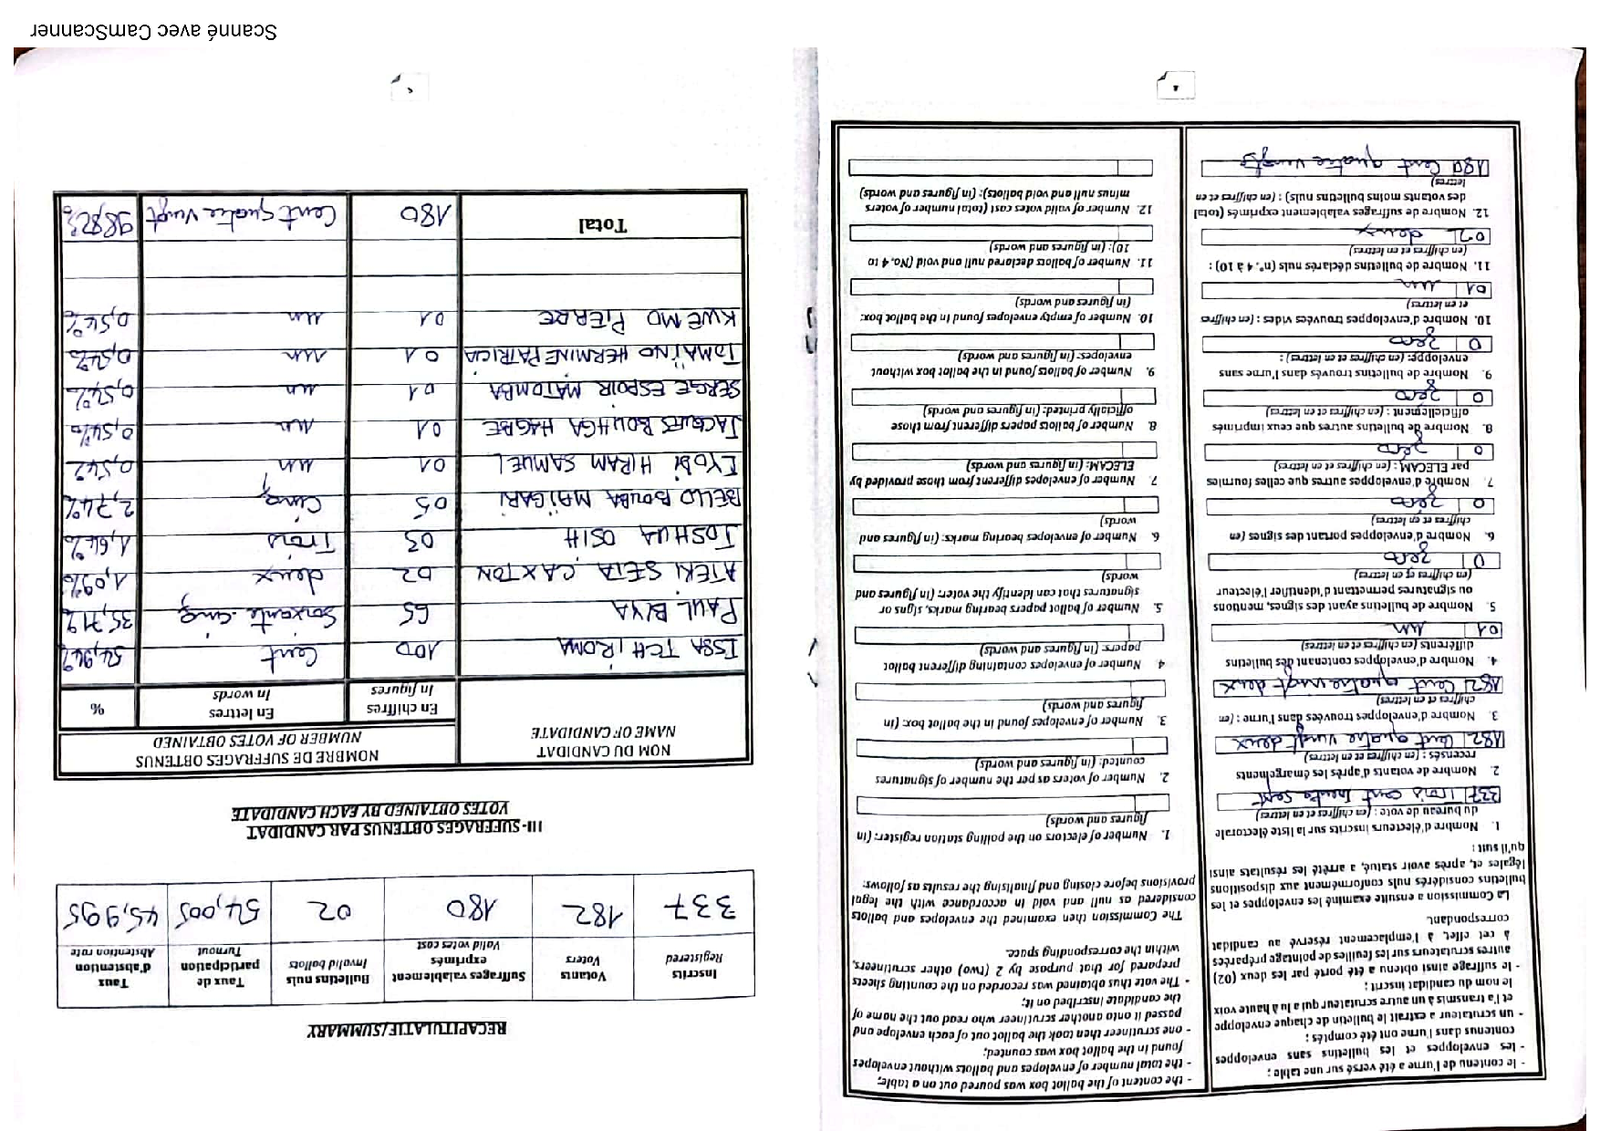 - le contenu de l'urne a été versé sur une table ;
- les enveloppes et les bulletins sans enveloppes
contenus dans l'urne ont été comptés ;
- un scrutateur a extrait le bulletin de chaque enveloppe
et l'a transmis à un autre scrutateur qui a lu à haute voix
le nom du candidat inscrit ;
- le suffrage ainsi obtenu a été porté par les deux (02)
autres scrutateurs sur les feuilles de pointage préparées
à cet effet, à l'emplacement réservé au candidat
correspondant.
La Commission a ensuite examiné les enveloppes et les
bulletins considérés nuls conformément aux dispositions
légales et, après avoir statué, a arrêté les résultats ainsi
qu'il suit :
1. Nombre d'électeurs inscrits sur la liste électorale
du bureau de vote : (en chiffres et en lettres)
337 Trois cent trente sept
2. Nombre de votants d'après les émargements
recensés : (en chiffres et en lettres)
182 Cent quatre vingt deux
3. Nombre d'enveloppes trouvées dans l'urne : (en
chiffres et en lettres)
182 Cent quatre vingt deux
4. Nombre d'enveloppes contenant des bulletins
différents (en chiffres et en lettres)
01 un
5. Nombre de bulletins ayant des signes, mentions
ou signatures permettant d'identifier l'électeur
(en chiffres et en lettres)
0 zero
6. Nombre d'enveloppes portant des signes (en
chiffres et en lettres)
0 zero
7. Nombre d'enveloppes autres que celles fournies
par ELECAM : (en chiffres et en lettres)
0 zero
8. Nombre de bulletins autres que ceux imprimés
officiellement : (en chiffres et en lettres)
0 zero
9. Nombre de bulletins trouvés dans l'urne sans
enveloppe: (en chiffres et en lettres) :
0 zero
10. Nombre d'enveloppes trouvées vides : (en chiffres
et en lettres)
01 un
11. Nombre de bulletins déclarés nuls (n°. 4 à 10) :
(en chiffres et en lettres)
02 deux
12. Nombre de suffrages valablement exprimés (total
des votants moins bulletins nuls) : (en chiffres et en
lettres)
180 Cent quatre vingts
- the content of the ballot box was poured out on a table;
- the total number of envelopes and ballots without envelopes
found in the ballot box was counted;
- one scrutineer then took the ballot out of each envelope and
passed it onto another scrutineer who read out the name of
the candidate inscribed on it;
- The vote thus obtained was recorded on the counting sheets
prepared for that purpose by 2 (two) other scrutineers,
within the corresponding space.
The Commission then examined the envelopes and ballots
considered as null and void in accordance with the legal
provisions before closing and finalising the results as follows:
1. Number of electors on the polling station register: (in
figures and words)
2. Number of voters as per the number of signatures
counted: (in figures and words)
3. Number of envelopes found in the ballot box: (in
figures and words)
4 Number of envelopes containing different ballot
papers: (in figures and words)
5. Number of ballot papers bearing marks, signs or
signatures that can identify the voter: (in figures and
words)
6. Number of envelopes bearing marks: (in figures and
words)
7. Number of envelopes different from those provided by
ELECAM: (in figures and words)
8. Number of ballots papers different from those
officially printed: (in figures and words)
9. Number of ballots found in the ballot box without
envelopes: (in figures and words)
10. Number of empty envelopes found in the ballot box:
(in figures and words)
11. Number of ballots declared null and void (No. 4 to
10): (in figures and words)
12. Number of valid votes cast (total number of voters
minus null and void ballots): (in figures and words)
RECAPITULATIF/SUMMARY
Inscrits Registered | Votants Voters | Suffrages valablement exprimés Valid votes cast | Bulletins nuls Invalid ballots | Taux de participation Turnout | Taux d'abstention Abstention rate
337 | 182 | 180 | 02 | 54,005 | 45,995
III- SUFFRAGES OBTENUS PAR CANDIDAT
VOTES OBTAINED BY EACH CANDIDATE
NOM DU CANDIDAT NAME OF CANDIDATE | NOMBRE DE SUFFRAGES OBTENUS NUMBER OF VOTES OBTAINED
En chiffres In figures | En lettres In words | %
ISSA TCHIROMA 100 Cent 54,94%
PAUL BIYA 65 Soixante-cinq 35,71%
ATEKI SETA CAXTON 02 deux 1,09%
JOSHUA OSIH 03 Trois 1,64%
BELLO BOUBA MAÏGARI 05 Cinq 2,74%
EYOBI HIRAM SAMUEL 01 un 0,54%
JACQUES BOUHGA HAGBE 01 un 0,54%
SERGE ESPOIR MATOMBA 01 un 0,54%
TOMAÏNO HERMINE PATRICIA 01 un 0,54%
KWEMO PIERRE 01 un 0,54%
Total 180 Cent quatre vingt 98,82%
Scanné avec CamScanner